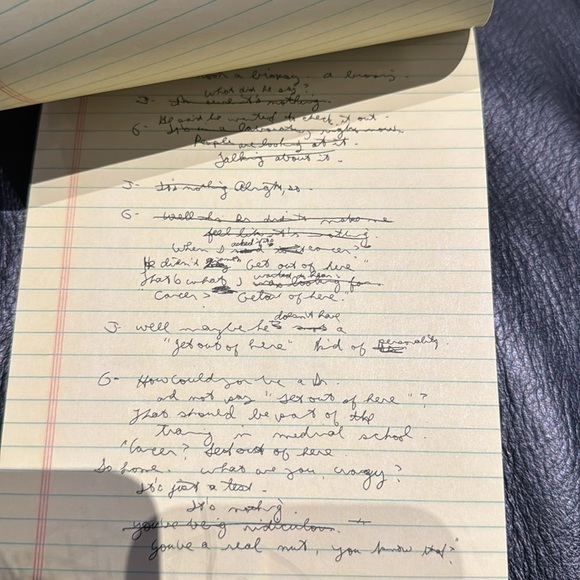 a biopsy. a biopsy.
What did he say?
J- I'm sure it's nothing.
He said he wanted to check it out.
G- It's in a laboratory right now.
People are looking at it.
Talking about it.
J- It's nothing Alright, so.
G- Well the Dr didn't make me
feel like it's nothing.
asked "Is
When I cancer?"
he didn't give me "Get out of here"
wanted to hear:
That's what I was looking for
Cancer? Get out of here."
doesn't have
J- well maybe he's a
"get out of here" kind of personality
G- How could you be a Dr.
and not say "get out of here"?
That should be part of the
training in medical school.
"Cancer? Get out of here
Go home. What are you, crazy?
It's just a test.
It's nothing.
You're being ridiculous.
You're a real nut, you know that?"